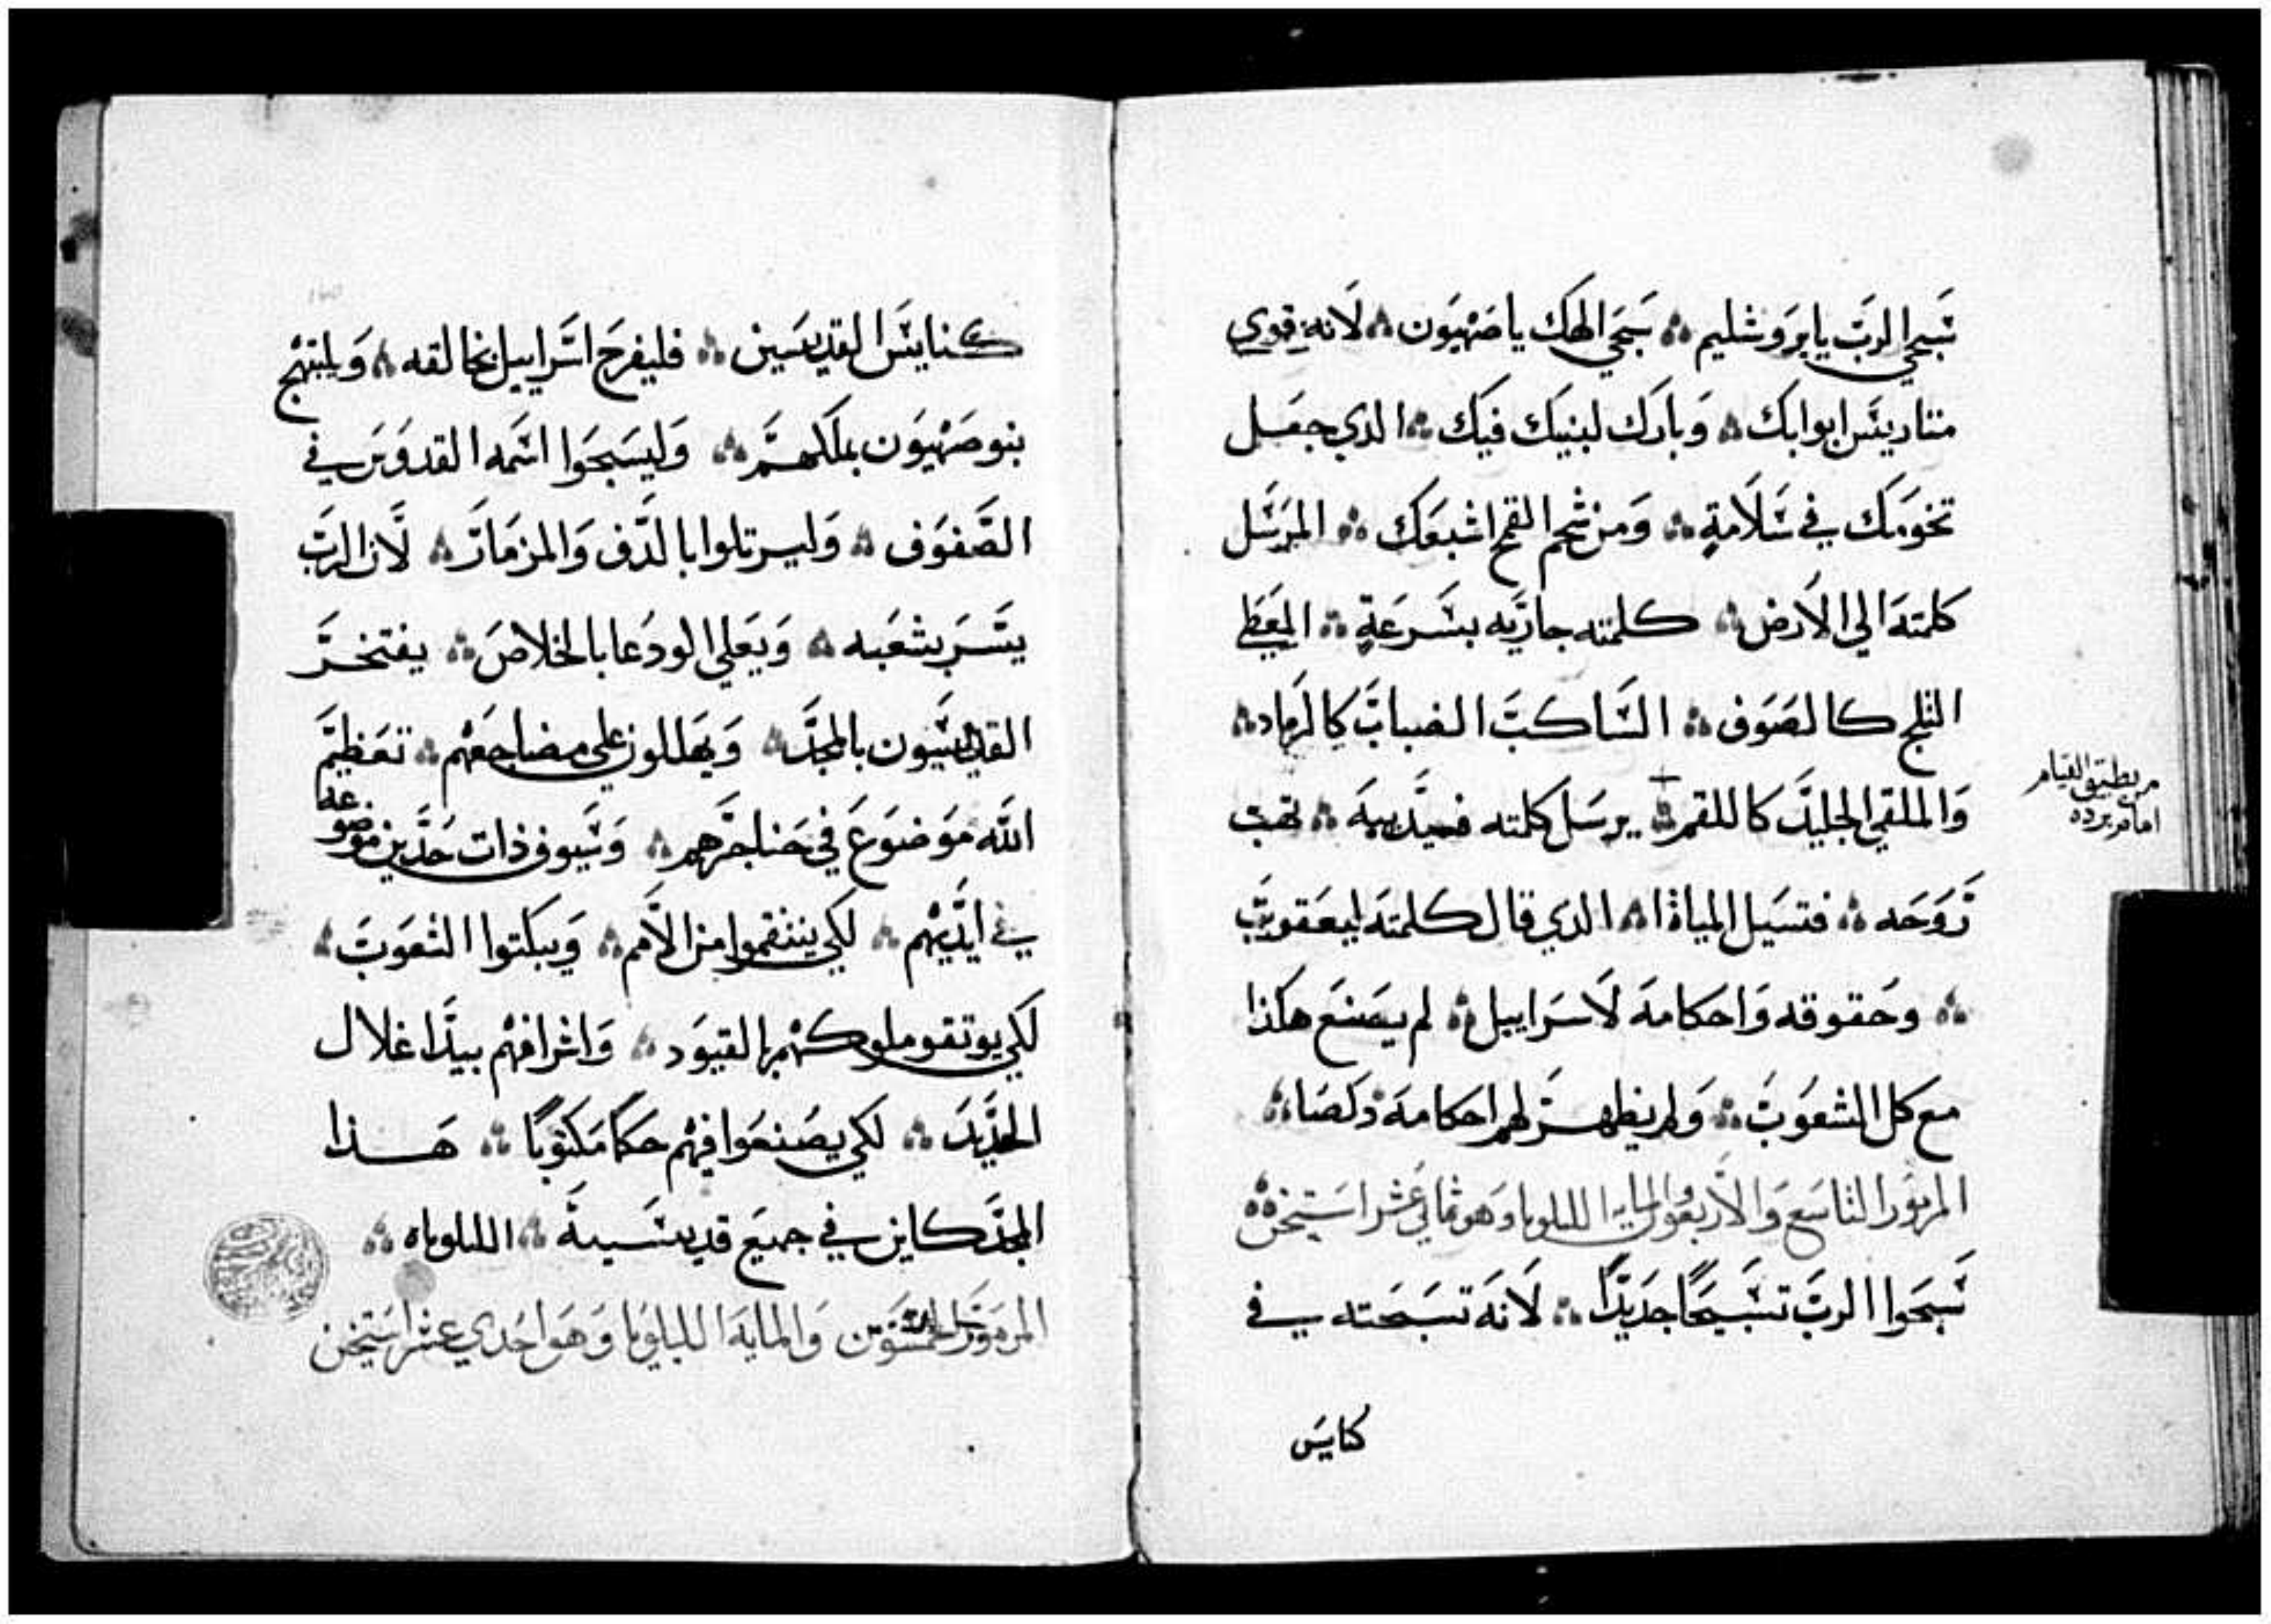 سَبحي الربّ يا يروشليم ؞ سَبحَي الهَك يا صَهيَون ؞ لَانهِ قوي
متاريسَ ابوابكَ ؞ وَبارَك لبنيَك فيَك ؞ الدي جعَل
تخوَمَك في سَلَامةٍ ؞ وَمن شحم القمح اشبعَوَك ؞ المرَسَل
كلمتهَ الي الاَرض ؞ كلمته جاريَه بسَرعَةٍ ؞ المعَطي
الثلج كالصَوَف ؞ السَاكبَ الضبابَ كالرَماد ؞
وَالملقي الجليدَ كاللقم ؞ يرسَل كلمته فيدَيبهَ ؞ تهب
رَوَحَه ؞ فتسَيل المياة ؞ الدي قال كلمتهَ ليعَقوبَ
؞ وحَقوقه وَاحكامهَ لاَسَراييل ؞ لم يصَنعَ هاكذا
مع كل الشعوَبَ ؞ وَلم يظهرَ لهم احكامهَ
المزمَوَر التاسَع وَالاَربعَون والمايه الليلويا وَهو ثماني عَشر اسَتيخن ؞
سَبحَوا الربَ تسَبيحًا جدَيدًا ؞ لاَنهَ تسَبحَته في
كنايسَ
من يطيق القيام
امام برده
كنايسَ القديسَين ؞ فليفرحَ اسَراييل بخالقه ؞ وَليبتهج
بنو صَهيَون بملَكهمَ ؞ وَليسَبحَوا اسَمه القدوَسَ في
الصَفوَف ؞ وَليرتلوا بالدَف وَالمزمَارَ ؞ لَان الربَ
يسَرَ بشعَبه ؞ وَيعَلي الودُعا بالخلاصَ ؞ يفتخرَ
القديسَيون بالمجدَ ؞ وَيهَللون علي مضاجعَهم ؞ تعَظيمَ
اللَه مَوَضوَعَ في حَناجرَهم ؞ وَسَيوف ذات حَدَين موضوعه
في ايدَيهم ؞ لكي ينتقموا من الاَمم ؞ وَيبكتوا الشعَوَبَ ؞
لَكي يوتقو ملوكهم بالقيوَد ؞ وَاشرافهم بيدَا غلال
الحدَيدَ ؞ لكي يصَنعَوا فيهم حَكمًا مَكتوَبًا ؞ هَذا
المجدَ كاين في جميعَ قديسَيهَ ؞ الليلوياه ؞
المزمَوَر الخمسَوَن وَالمايهَ الليلوَيا وَهَوَ احَدي عَشر اسَتيخن